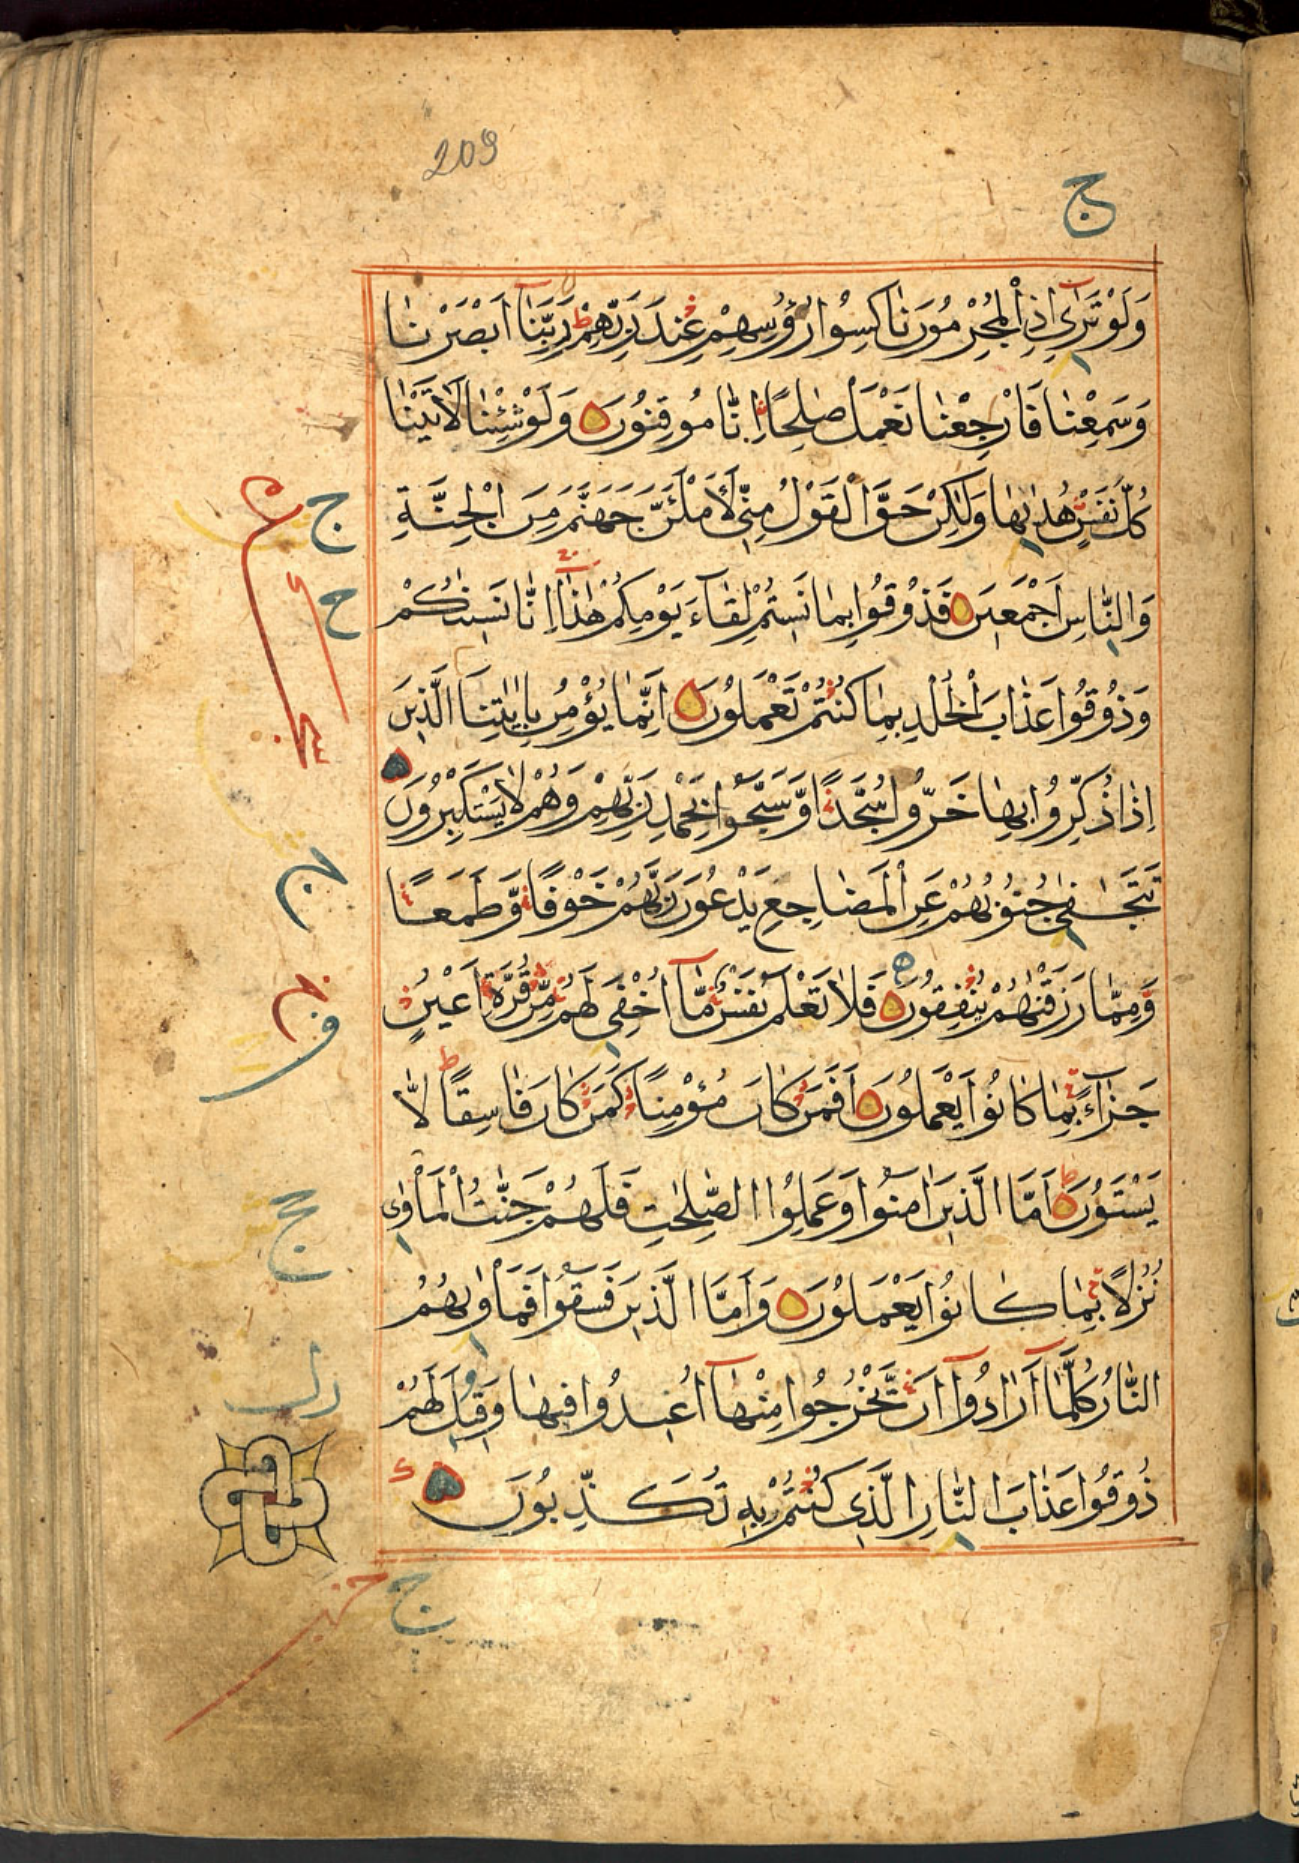 209
ج
وَلَوْ تَرٰٓى اِذِ الْمُجْرِمُوْنَ نَاكِسُوْا رُؤُسِهِمْ عِنْدَ رَبِّهِمْ ط رَبَّنَآ اَبْصَرْنَا
وَسَمِعْنَا فَارْجِعْنَا نَعْمَلْ صٰلِحًا اِنَّا مُوْقِنُوْنَ وَلَوْ شِئْنَا لَاٰتَيْنَا
كُلَّ نَفْسٍ هُدٰىهَا وَلٰكِنْ حَقَّ الْقَوْلُ مِنِّيْ لَاَمْلَئَنَّ جَهَنَّمَ مِنَ الْجِنَّةِ
ج
وَالنَّاسِ اَجْمَعِيْنَ فَذُوْقُوْا بِمَا نَسِيْتُمْ لِقَآءَ يَوْمِكُمْ هٰذَا اِنَّا نَسِيْنٰكُمْ
ح
وَذُوْقُوْا عَذَابَ الْخُلْدِ بِمَا كُنْتُمْ تَعْمَلُوْنَ اِنَّمَا يُؤْمِنُ بِاٰيٰتِنَا الَّذِيْنَ
اِذَا ذُكِّرُوْا بِهَا خَرُّوْا سُجَّدًا وَّسَبَّحُوْا بِحَمْدِ رَبِّهِمْ وَهُمْ لَا يَسْتَكْبِرُوْنَ
تَتَجَافٰى جُنُوْبُهُمْ عَنِ الْمَضَاجِعِ يَدْعُوْنَ رَبَّهُمْ خَوْفًا وَّطَمَعًا
وَّمِمَّا رَزَقْنٰهُمْ يُنْفِقُوْنَ فَلَا تَعْلَمُ نَفْسٌ مَّآ اُخْفِيَ لَهُمْ مِّنْ قُرَّةِ اَعْيُنٍ
جَزَآءً بِمَا كَانُوْا يَعْمَلُوْنَ اَفَمَنْ كَانَ مُؤْمِنًا كَمَنْ كَانَ فَاسِقًا ط لَّا
يَسْتَوُوْنَ ط اَمَّا الَّذِيْنَ اٰمَنُوْا وَعَمِلُوا الصّٰلِحٰتِ فَلَهُمْ جَنّٰتُ الْمَاْوٰى
نُزُلًا بِمَا كَانُوْا يَعْمَلُوْنَ وَاَمَّا الَّذِيْنَ فَسَقُوْا فَمَاْوٰىهُمُ
النَّارُ كُلَّمَآ اَرَادُوْٓا اَنْ يَّخْرُجُوْا مِنْهَآ اُعِيْدُوْا فِيْهَا وَقِيْلَ لَهُمْ
ذُوْقُوْا عَذَابَ النَّارِ الَّذِيْ كُنْتُمْ بِهٖ تُكَذِّبُوْنَ
ج